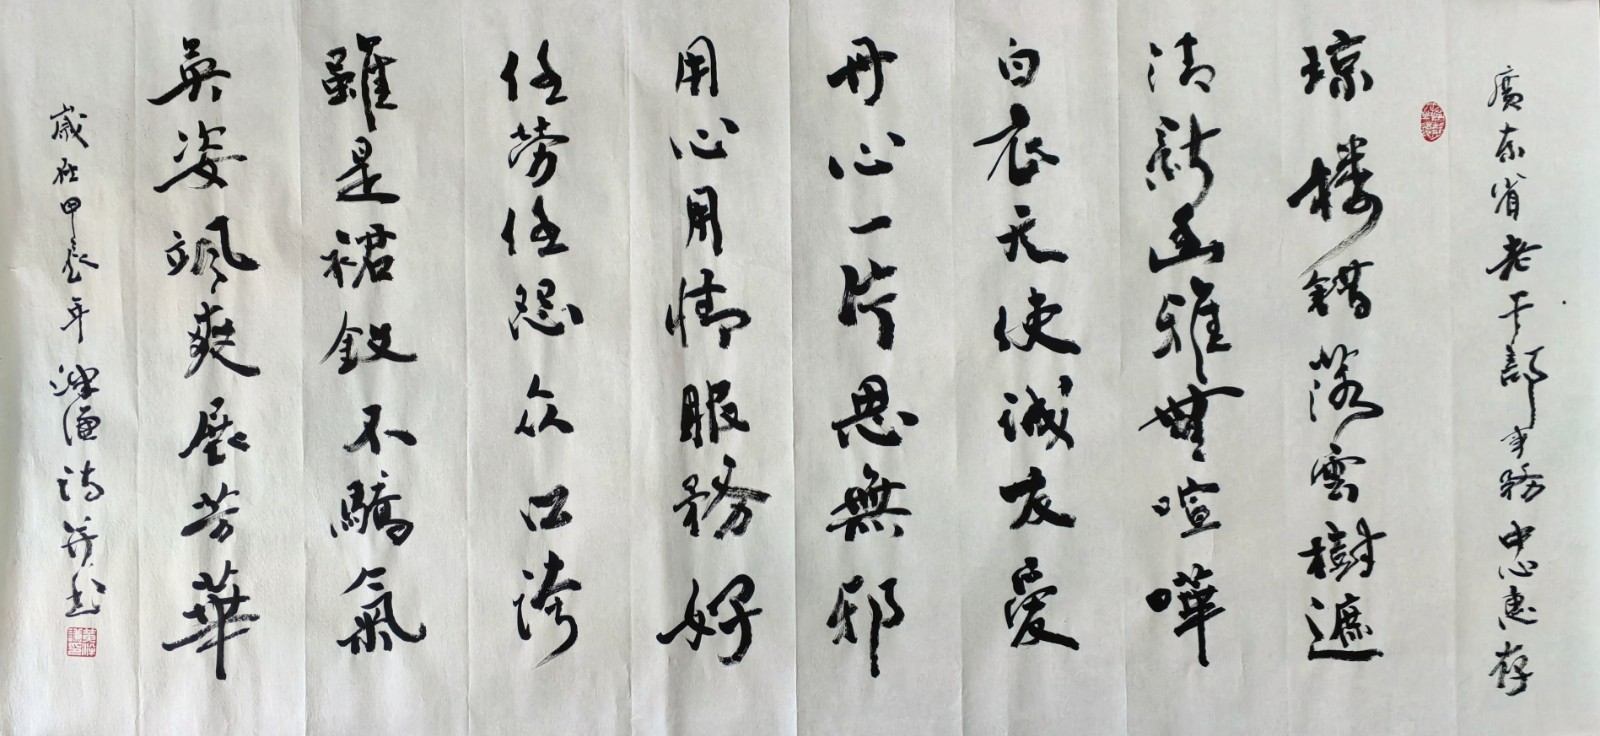 廣东省老干部事務中心惠存
琼楼錯落雲樹遮
清新幽雅無喧嘩
白衣天使诚友爱
丹心一片思無邪
用心用情服務好
任劳任怨众口誇
雖是裙釵不驕氣
英姿颯爽展芳華
歲在甲辰年 谦詩并书